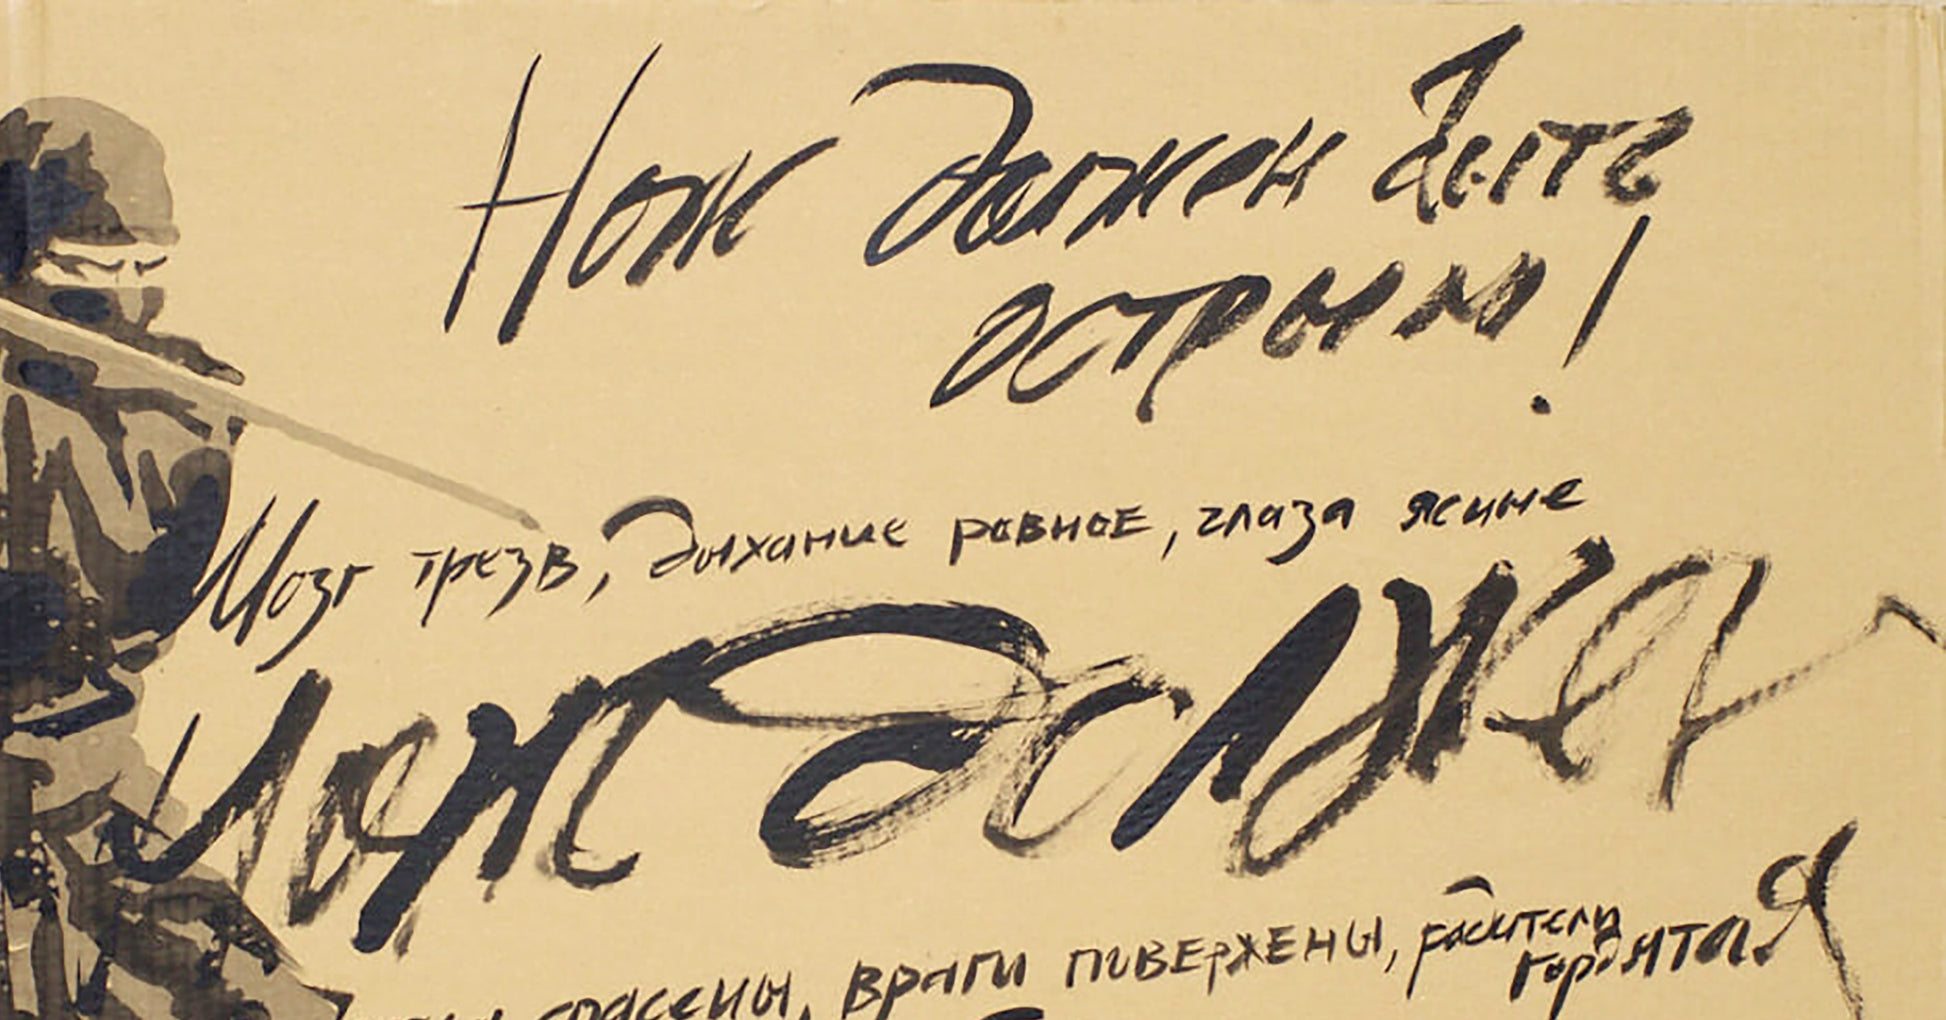 Нож должен быть
острым!
Мозг трезв, дыхание ровное, глаза ясные
Нож должен
спасены, враги повержены, родители
гордятся